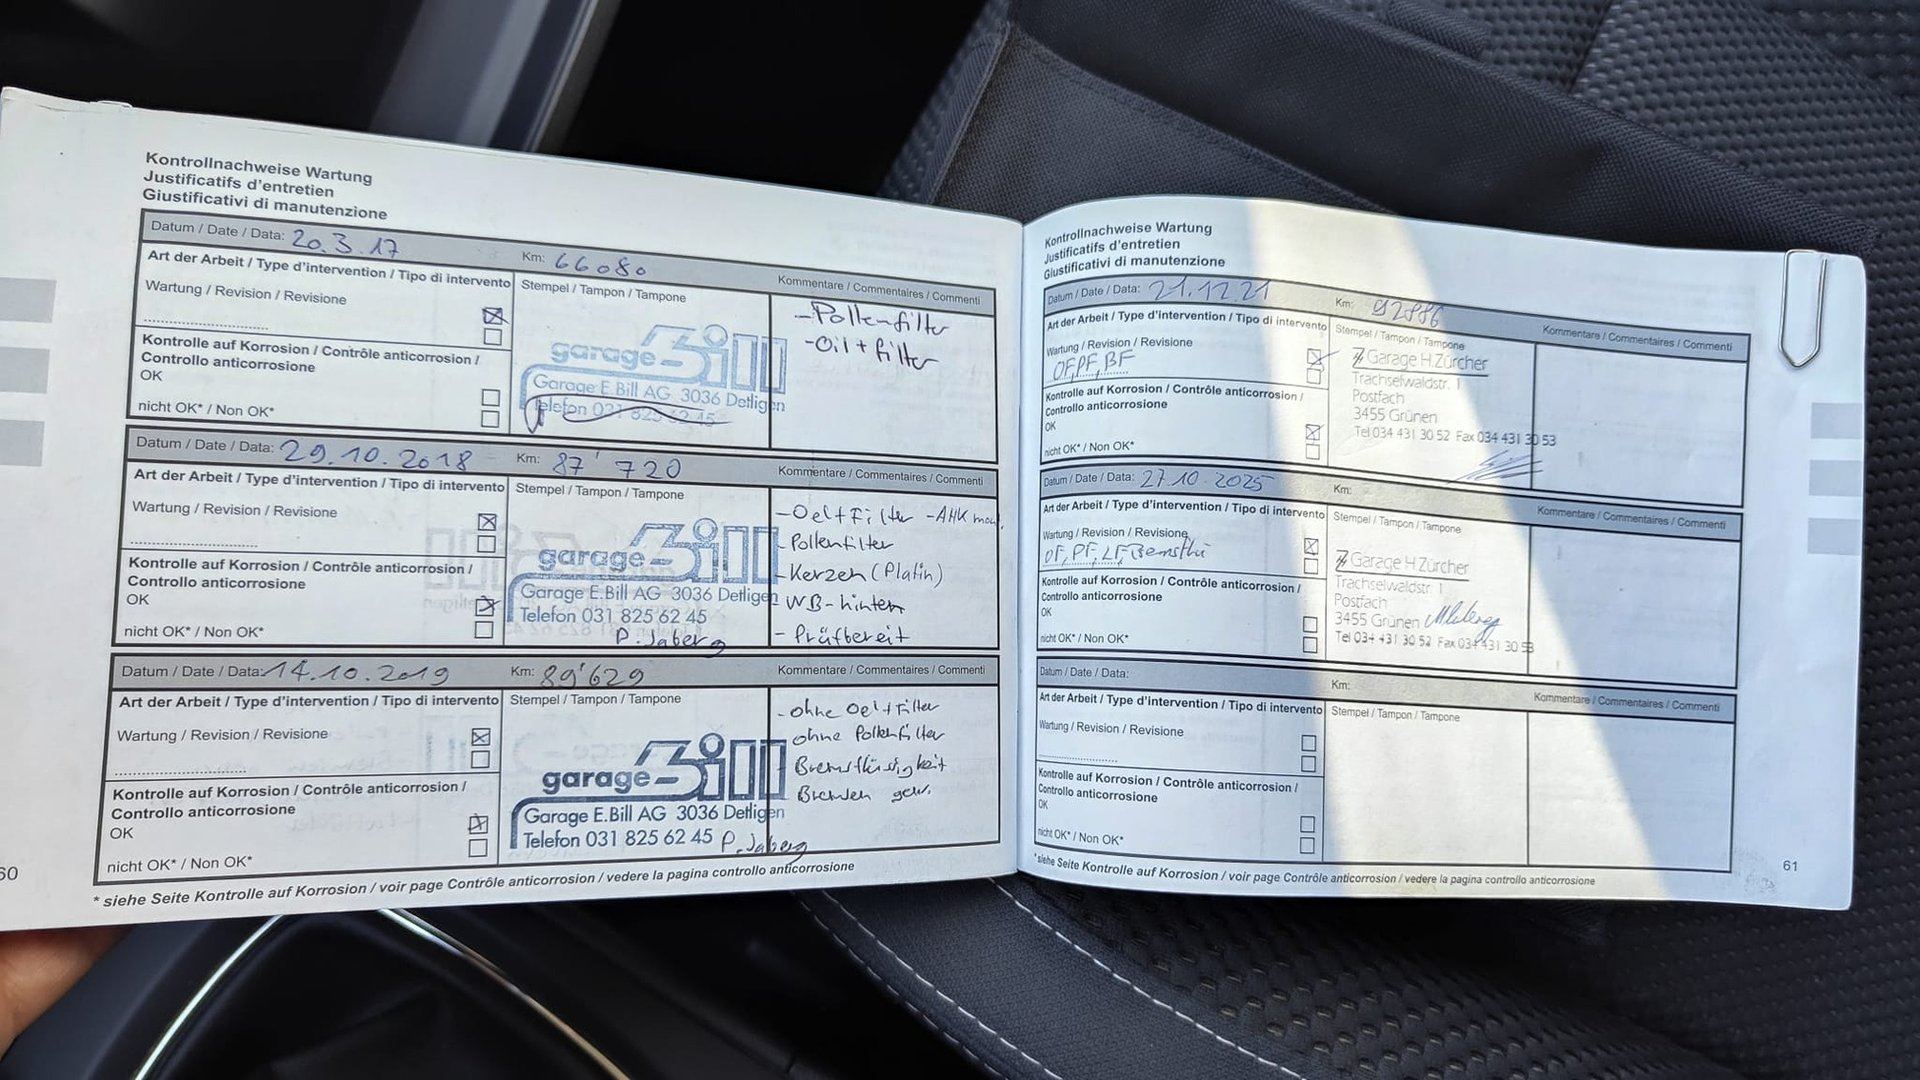 Kontrollnachweise Wartung
Justificatifs d'entretien
Giustificativi di manutenzione
Datum / Date / Data: 20.3.17 Km: 66080
Kommentare / Commentaires / Commenti
Art der Arbeit / Type d'intervention / Tipo di intervento
Stempel / Tampon / Tampone
Wartung / Revision / Revisione
- Pollenfilter
- Oil + Filter
Kontrolle auf Korrosion / Contrôle anticorrosion /
Controllo anticorrosione
OK
nicht OK* / Non OK*
garage Bill
Garage E. Bill AG 3036 Detligen
Telefon 031 825 62 45
Datum / Date / Data: 29.10.2018 Km: 87'720
Kommentare / Commentaires / Commenti
Art der Arbeit / Type d'intervention / Tipo di intervento
Stempel / Tampon / Tampone
Wartung / Revision / Revisione
- Oel+Filter - AHK
- Pollenfilter
- Kerzen (Platin)
- WB-hinten
- Prüfbereit
Kontrolle auf Korrosion / Contrôle anticorrosion /
Controllo anticorrosione
OK
nicht OK* / Non OK*
garage Bill
Garage E.Bill AG 3036 Detligen
Telefon 031 825 62 45
P. Jaberg
Datum / Date / Data: 14.10.2019 Km: 89'629
Kommentare / Commentaires / Commenti
Art der Arbeit / Type d'intervention / Tipo di intervento
Stempel / Tampon / Tampone
Wartung / Revision / Revisione
- ohne Oel+Filter
ohne Pollenfilter
Bremsflüssigkeit
Bremsen gew.
Kontrolle auf Korrosion / Contrôle anticorrosion /
Controllo anticorrosione
OK
nicht OK* / Non OK*
garage Bill
Garage E.Bill AG 3036 Detligen
Telefon 031 825 62 45 P. Jaberg
* siehe Seite Kontrolle auf Korrosion / voir page Contrôle anticorrosion / vedere la pagina controllo anticorrosione
60
Kontrollnachweise Wartung
Justificatifs d'entretien
Giustificativi di manutenzione
Datum / Date / Data: 21.12.21 Km: 92886
Kommentare / Commentaires / Commenti
Art der Arbeit / Type d'intervention / Tipo di intervento
Stempel / Tampon / Tampone
Wartung / Revision / Revisione
OF, PF, BF
Kontrolle auf Korrosion / Contrôle anticorrosion /
Controllo anticorrosione
OK
nicht OK* / Non OK*
Garage H.Zürcher
Trachselwaldstr. 1
Postfach
3455 Grünen
Tel 034 431 30 52 Fax 034 431 30 53
Datum / Date / Data: 27.10.2025 Km:
Kommentare / Commentaires / Commenti
Art der Arbeit / Type d'intervention / Tipo di intervento
Stempel / Tampon / Tampone
Wartung / Revision / Revisione
OF, PF, LF,
Kontrolle auf Korrosion / Contrôle anticorrosion /
Controllo anticorrosione
OK
nicht OK* / Non OK*
Garage H.Zürcher
Trachselwaldstr. 1
Postfach
3455 Grünen
Tel 034 431 30 52 Fax 034 431 30 53
Datum / Date / Data: Km:
Kommentare / Commentaires / Commenti
Art der Arbeit / Type d'intervention / Tipo di intervento
Stempel / Tampon / Tampone
Wartung / Revision / Revisione
Kontrolle auf Korrosion / Contrôle anticorrosion /
Controllo anticorrosione
OK
nicht OK* / Non OK*
* siehe Seite Kontrolle auf Korrosion / voir page Contrôle anticorrosion / vedere la pagina controllo anticorrosione
61